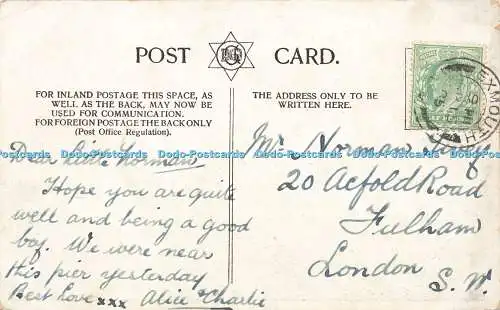 POST CARD.
FOR INLAND POSTAGE THIS SPACE, AS
WELL AS THE BACK, MAY NOW BE
USED FOR COMMUNICATION.
FOR FOREIGN POSTAGE THE BACK ONLY
(Post Office Regulation).
THE ADDRESS ONLY TO BE
WRITTEN HERE.
EXMOUTH
Dodo-Postcards Dodo-Postcards Dodo-Postcards Dodo-Postcards Dodo-Postcards
Dear little Norman
Hope you are quite
well and being a good
boy. We were near
this pier yesterday
Best Love xxx Alice & Charlie
Mr Norman
20 Acfold Road
Fulham
London
S.W.